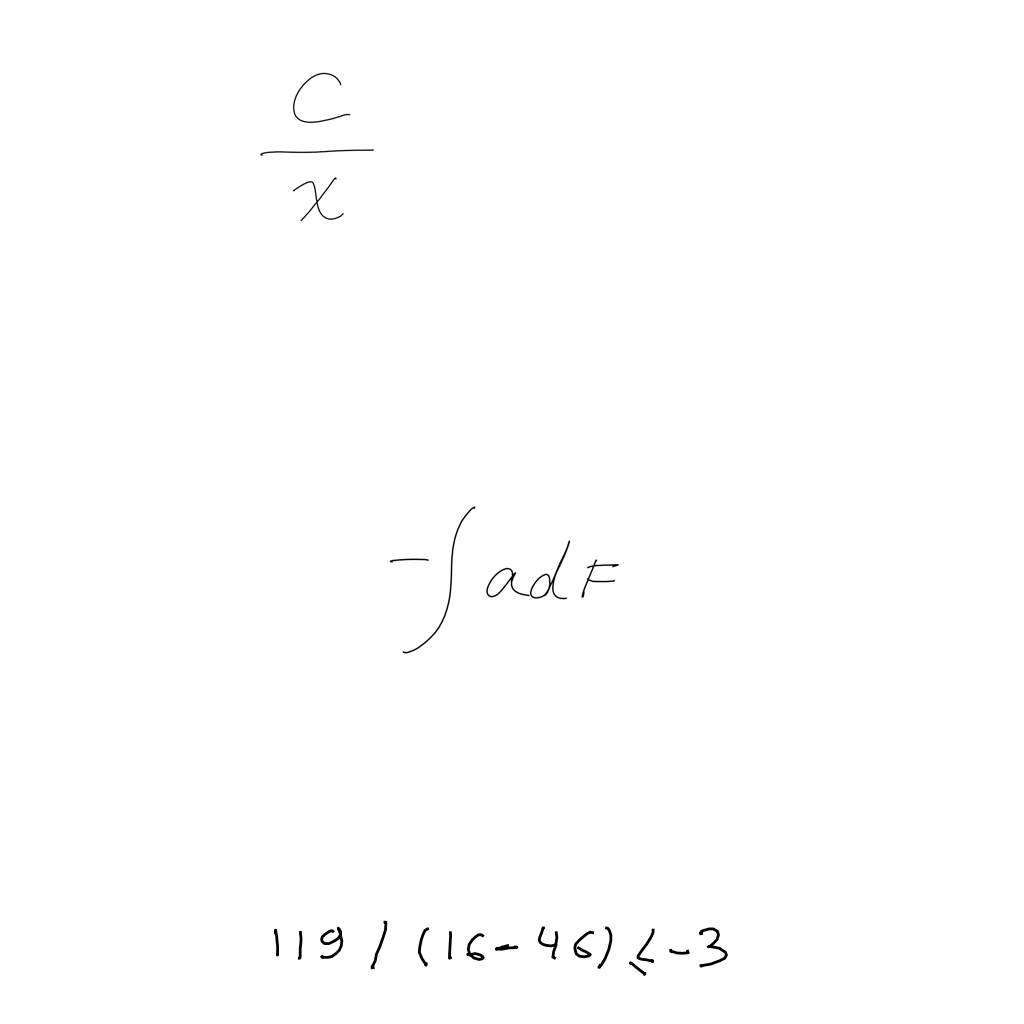 \frac{c}{x}
-\int a d F
119 / (16 - 46) \leq -3